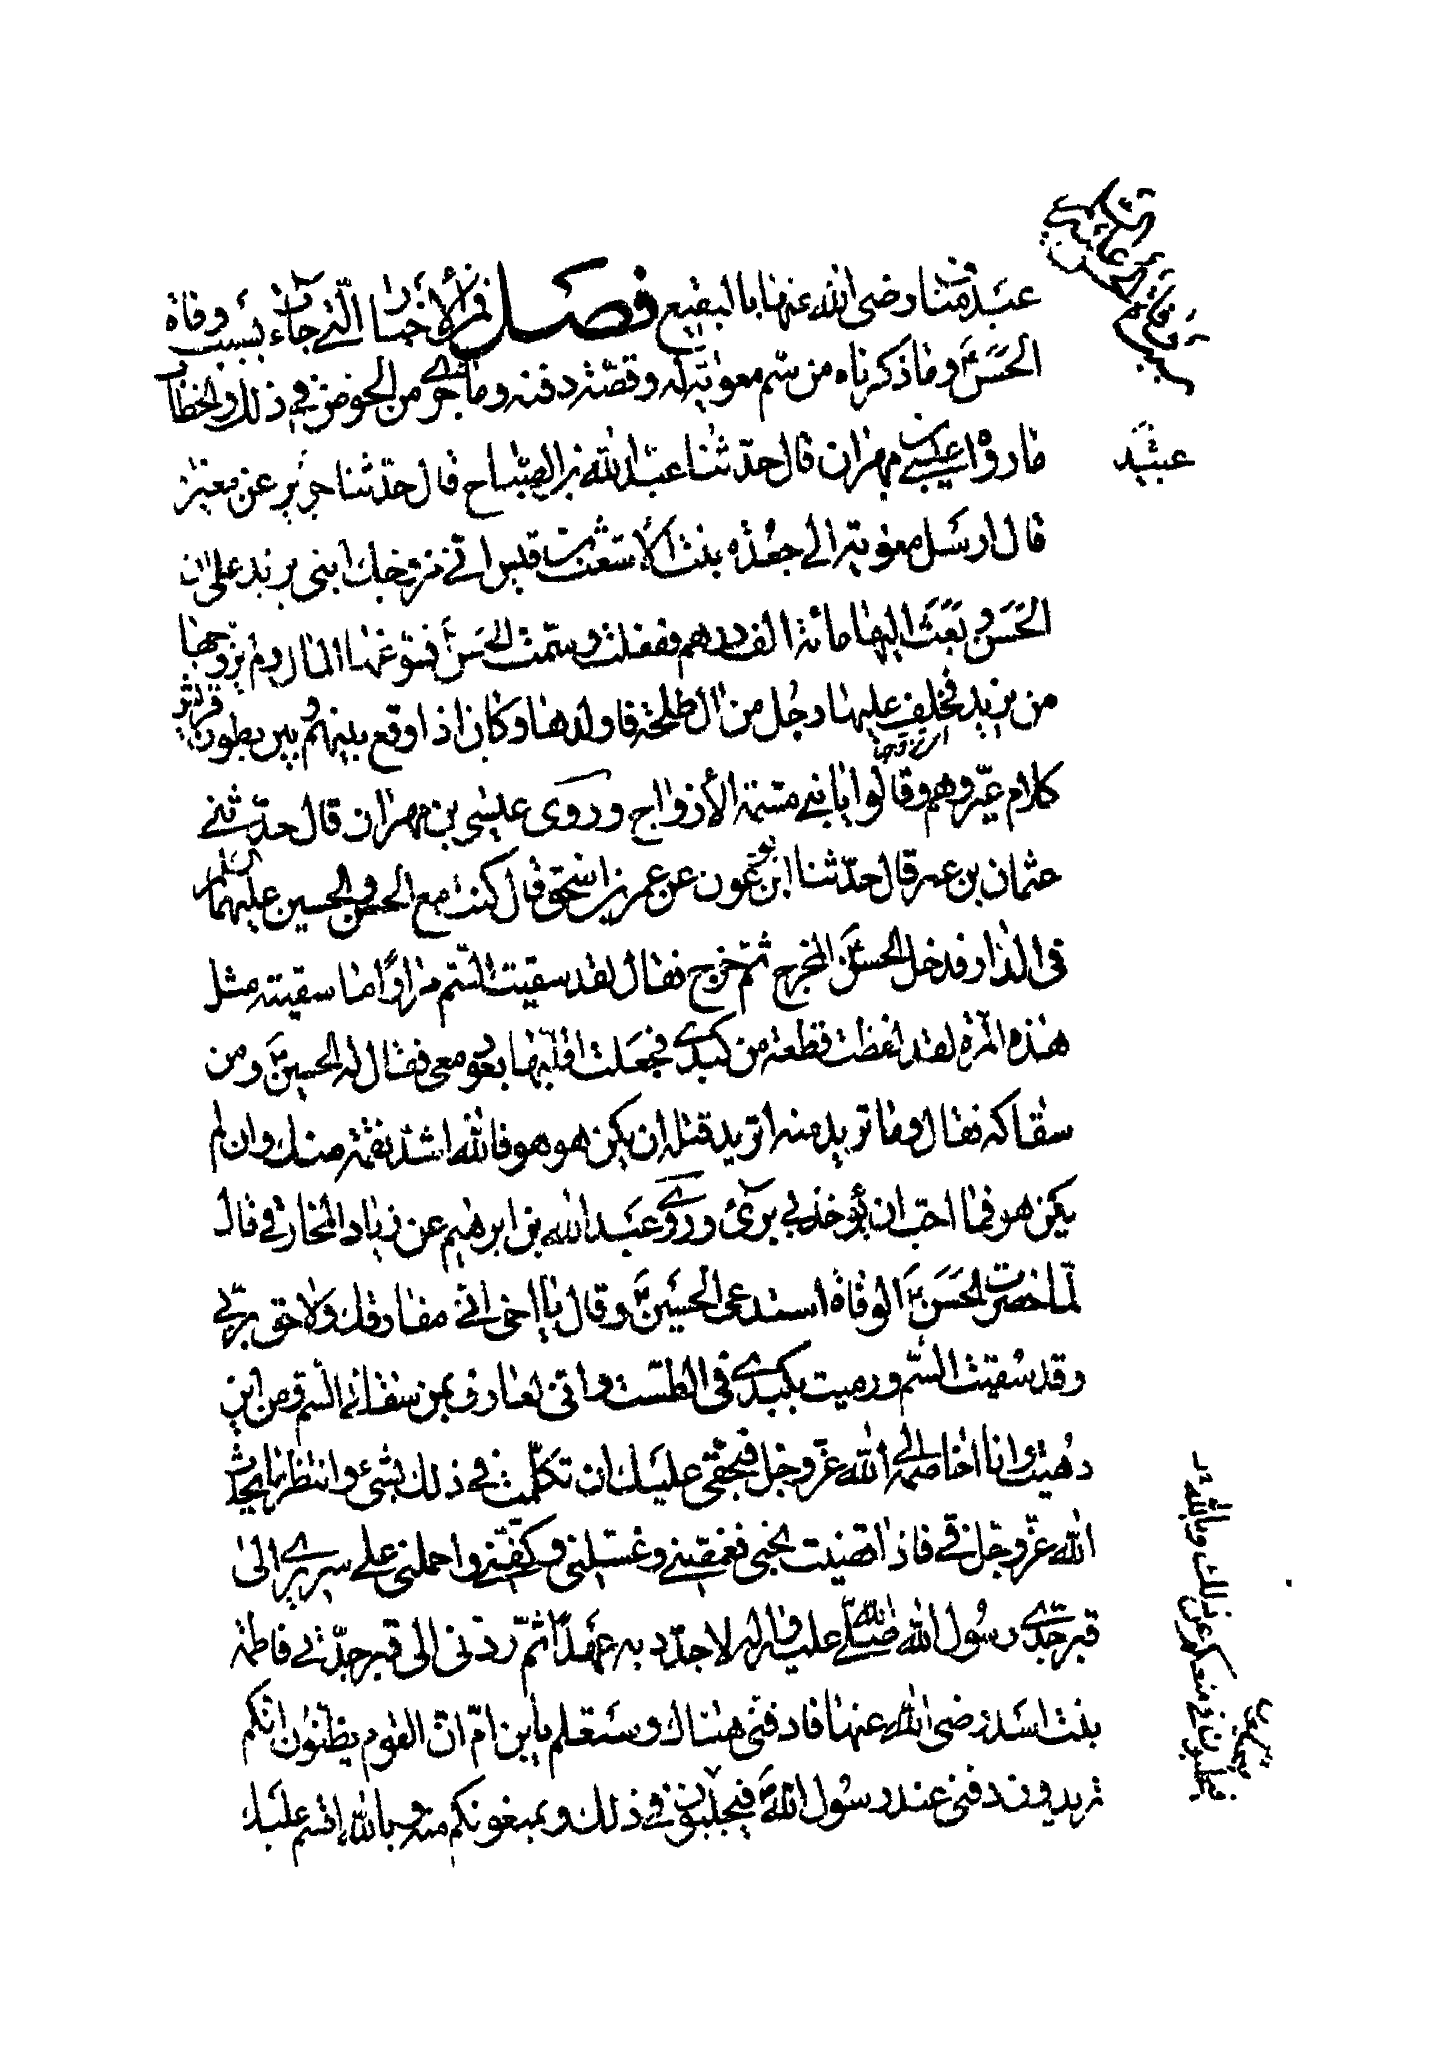 عبد مناف رضی الله عنها بالبقیع فصل فمن الأخبار التی جاءت بسبب وفاة
الحسن ع وما ذکرناه من سم معویة له وقصة دفنه وما جری من الخوض فی ذلک والخطاب
ما رواه عیسی بن مهران قال حدثنا عبید الله بن الصباح قال حدثنا جریر عن مغیرة
قال ارسل معویة الی جعدة بنت الأشعث بن قیس انی مزوجک ابنی یزید علی ان
الحسن وبعث الیها مائة الف درهم ففعلت وسمت الحسن ع فسوغها المال ولم یزوجها
من یزید فخلف علیها رجل من آل طلحة فاولدها وکان اذا وقع بینهم وبین بطون قریش
کلام عیروهم وقالوا یا بنی مسمة الأزواج وروی عیسی بن مهران قال حدثنی
عثمان بن عمر قال حدثنا ابن عون عن عمر بن اسحق قال کنت مع الحسن والحسین علیهما السلم
فی الدار فدخل الحسن ع المخرج ثم خرج فقال لقد سقیت السم مرارا وما سقیته مثل
هذه المرة لقد لفظت قطعة من کبدی فجعلت اقلبها بعود معی فقال له الحسین ع ومن
سقاکه فقال وما ترید منه اترید قتله ان یکن هو هو فالله اشد نقمة منک وان لم
یکن هو فما احب ان یؤخذ بی بریء وروی عبد الله بن ابرهیم عن زیاد المخارقی قال
لما حضرت الحسن ع الوفاة استدعی الحسین ع وقال یا اخی انی مفارقک ولاحق بربی
وقد سقیت السم ورمیت بکبدی فی الطست وانی لعارف بمن سقانی السم ومن این
دهیت وانا اخاصمه الی الله عز وجل فبحقی علیک ان تکلمت فی ذلک بشیء وانتظر ما یحدث
الله عز وجل فی فاذا قضیت نحبی فغمضنی وغسلنی وکفنی واحملنی علی سریری الی
قبر جدی رسول الله صلی الله علیه واله لاجدد به عهدا ثم ردنی الی قبر جدتی فاطمة
بنت اسد رضی الله عنها فادفنی هناک وستعلم یابن ام ان القوم یظنون انکم
تریدون دفنی عند رسول الله ص فیجلبون فی ذلک ویمنعونکم منه وبالله اقسم علیک
عبید